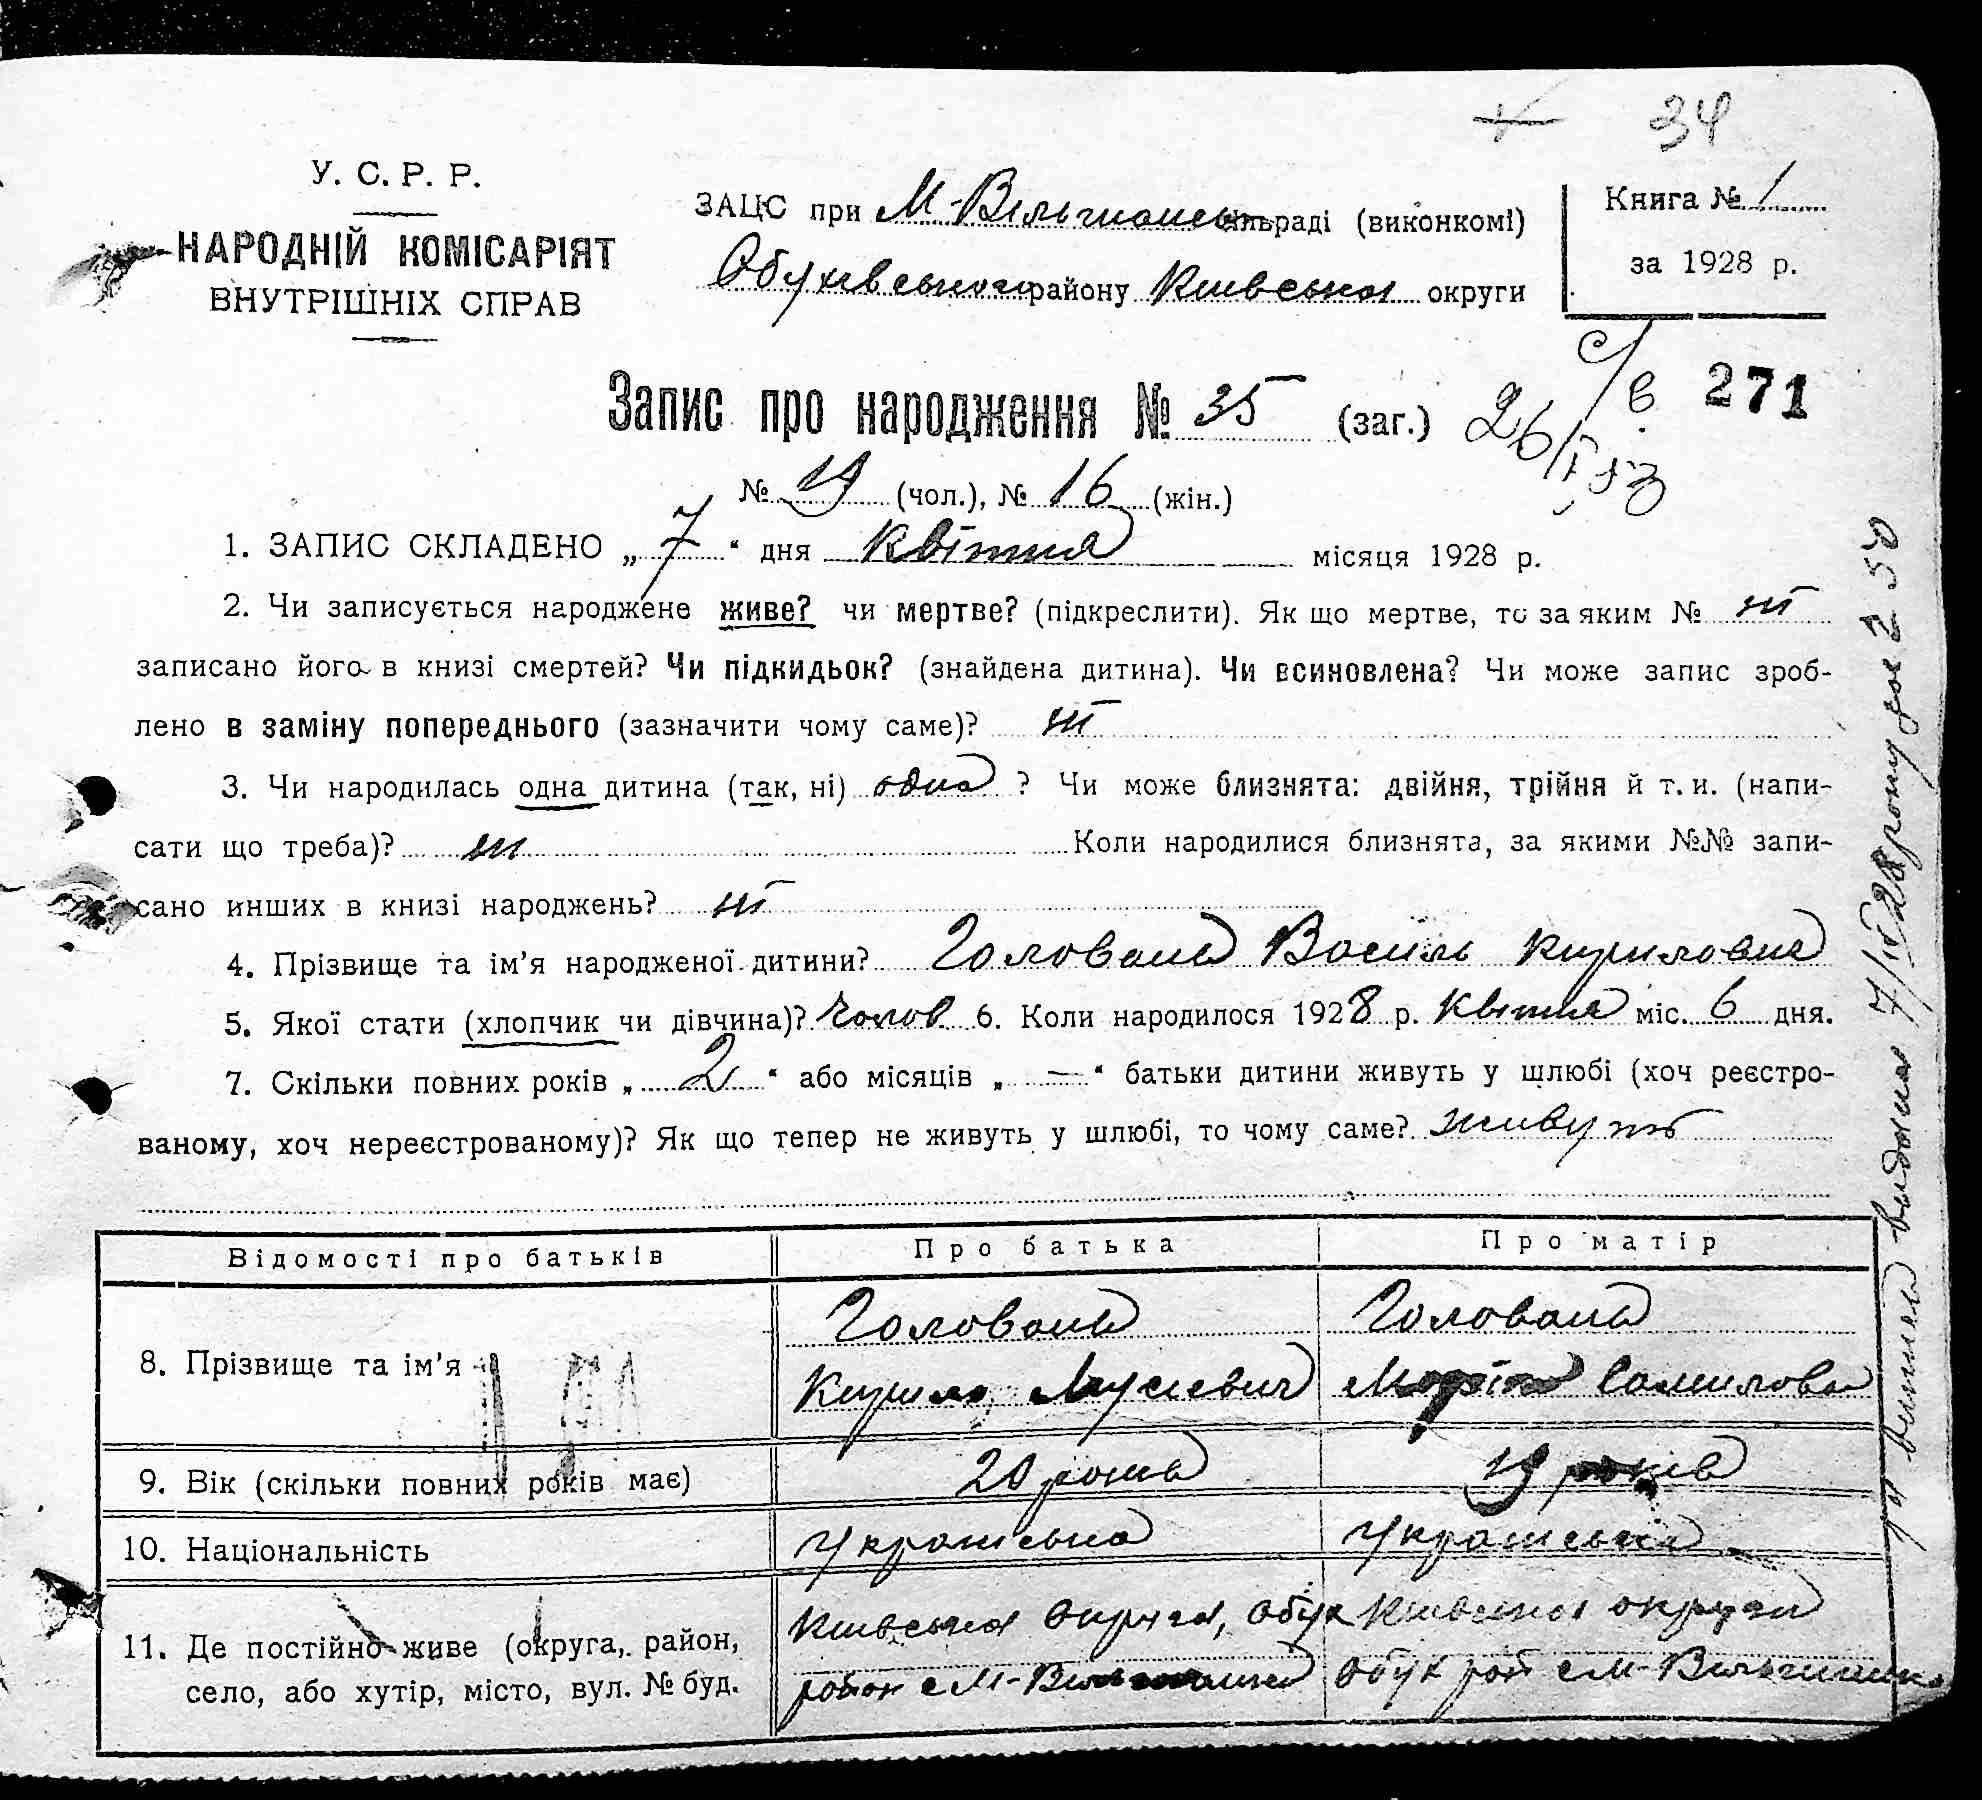 34
У. С. Р. Р.
НАРОДНІЙ КОМІСАРІЯТ
ВНУТРІШНІХ СПРАВ
ЗАЦС при М-Вільшанськ сільраді (виконкомі)
Обухівського району Київської округи
Книга № 1
за 1928 р.
271
Запис про народження № 35 (заг.)
№ 19 (чол.), № 16 (жін.)
1. ЗАПИС СКЛАДЕНО „ 7 “ дня квітня місяця 1928 р.
2. Чи записується народжене живе? чи мертве? (підкреслити). Як що мертве, то за яким № ні
записано його в книзі смертей? Чи підкидьок? (знайдена дитина). Чи всиновлена? Чи може запис зроб-
лено в заміну попереднього (зазначити чому саме)? ні
3. Чи народилась одна дитина (так, ні) одна ? Чи може близнята: двійня, трійня й т. и. (напи-
сати що треба)? ні Коли народилися близнята, за якими №№ запи-
сано инших в книзі народжень? ні
4. Прізвище та ім’я народженої дитини? Головань Василь Кирилович
5. Якої стати (хлопчик чи дівчина)? Чолов 6. Коли народилось 1928 р. Квітня міс. 6 дня.
7. Скільки повних років „ 2 “ або місяців „ — “ батьки дитини живуть у шлюбі (хоч реєстро-
ваному, хоч нереєстрованому)? Як що тепер не живуть у шлюбі, то чому саме? живуть
Відомості про батьків Про батька Про матір
8. Прізвище та ім’я Головань Головань
Кирило Мусієвич Марія Самилова
9. Вік (скільки повних років має) 20 років 19 років
10. Національність Українська Українська
11. Де постійно живе (округа, район, Київська округа, Обух Київська округа
село, або хутір, місто, вул. № буд. район с М-Вільшанка Обух рай с М-Вільшанк